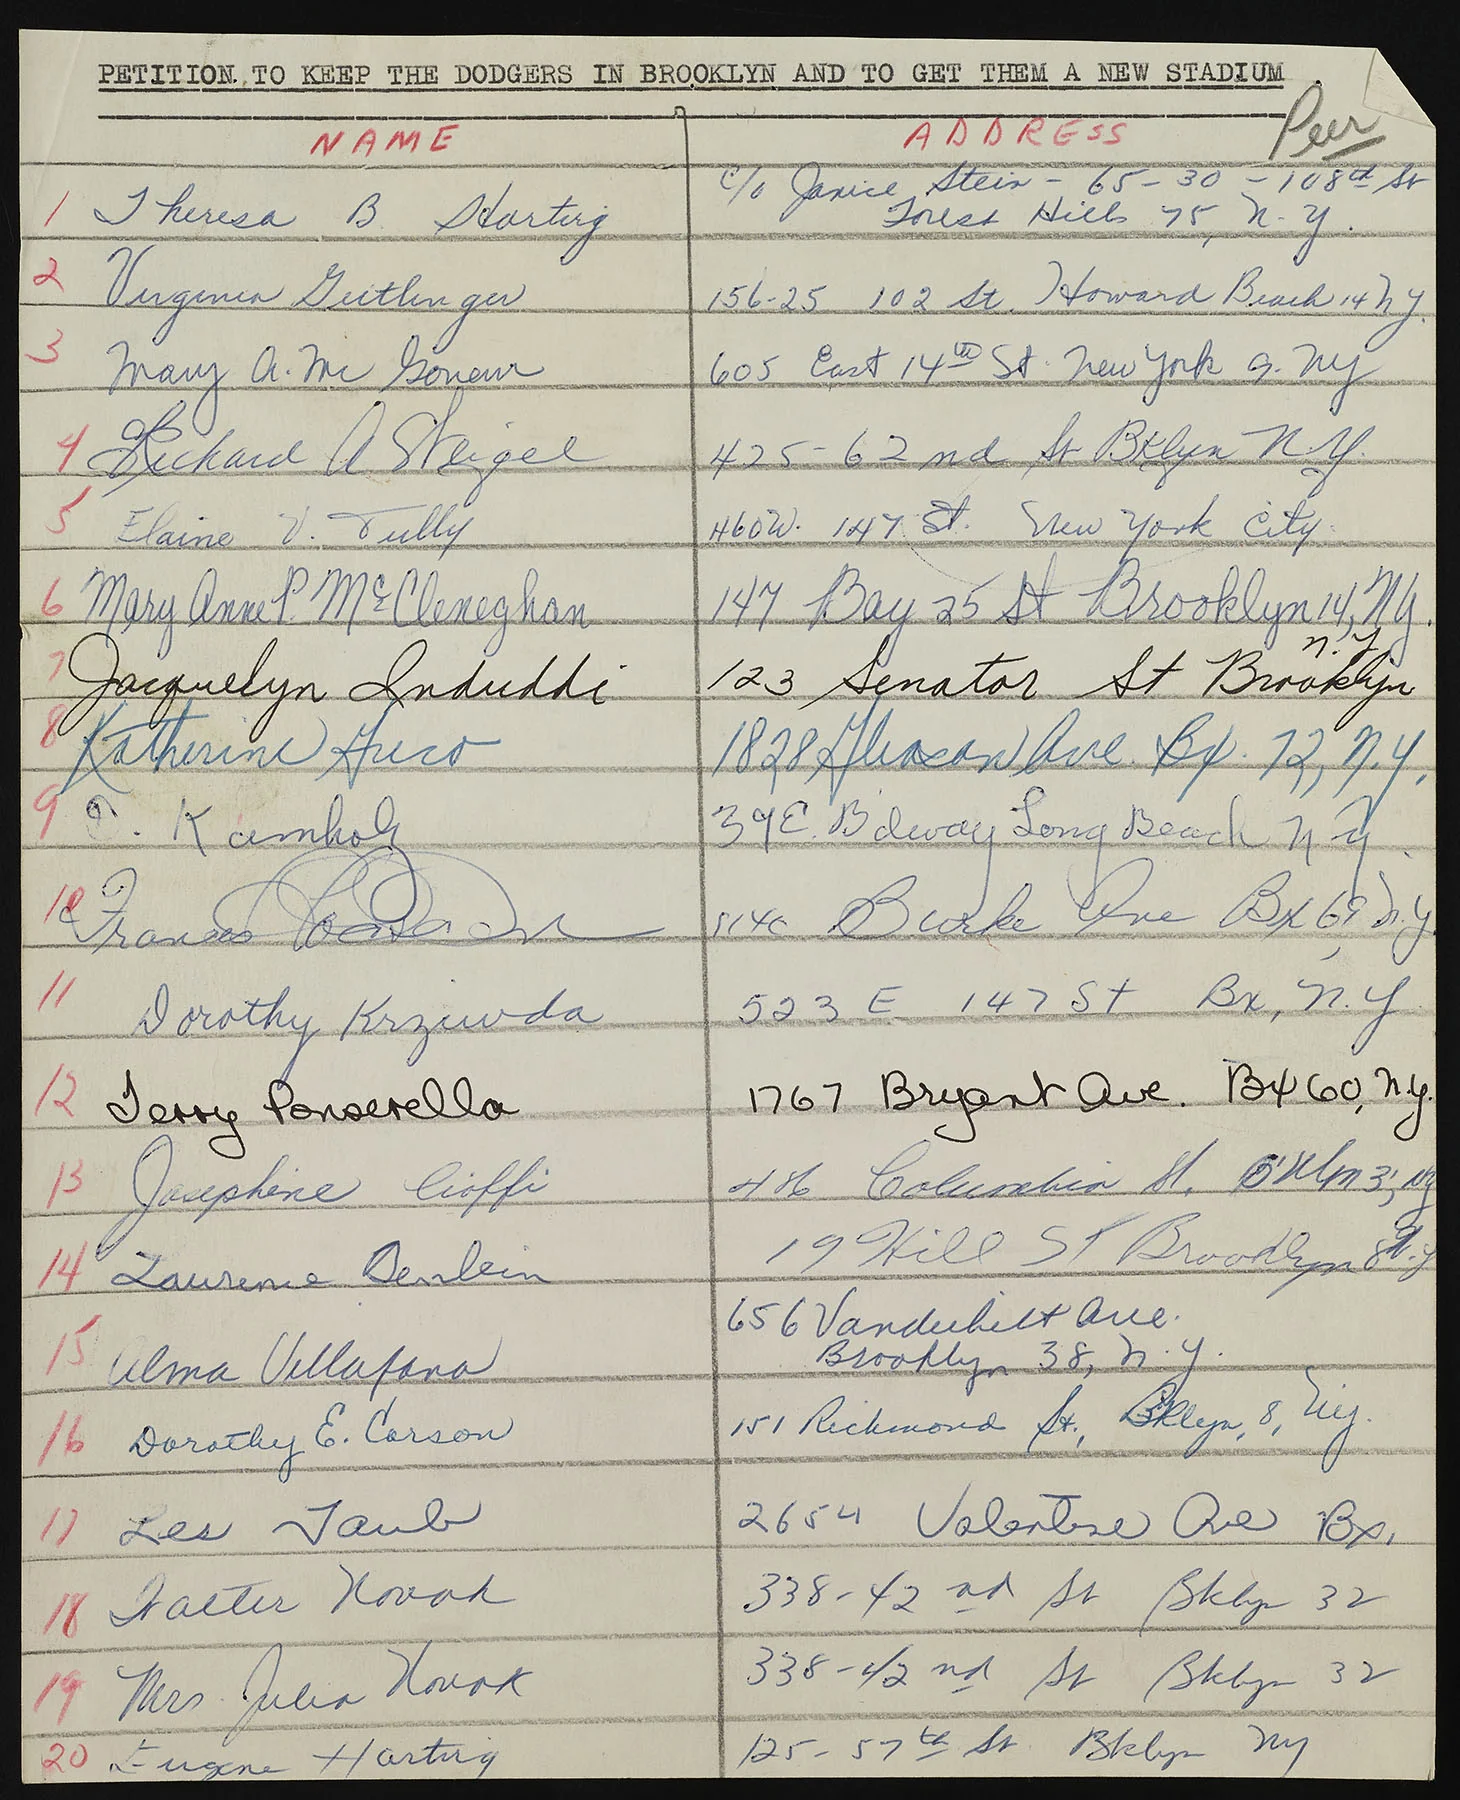 PETITION TO KEEP THE DODGERS IN BROOKLYN AND TO GET THEM A NEW STADIUM
Peer
NAME ADDRESS
c/o Janice Stein - 65-30 - 108th St
1 Theresa B Hartig Forest Hills 75, N.Y.
2 Virginia 156-25 102 St. Howard Beach 14 N.Y.
3 Mary A. Mc 605 East 14th St. New York 9. NY
4 Richard A Steigel 425-62nd St Bklyn N.Y.
5 Elaine V. Tully 460 W. 147 St. New York City
6 Mary Anne P. McCleneghan 147 Bay 25 St Brooklyn 14, N.Y.
N.Y.
7 Jacquelyn Induddi 123 Senator St Brooklyn
8 Katherine Greco 1828 Gleason Ave. Bx. 72, N.Y.
9 Kamholz 39 E. B'dway Long Beach N.Y.
10 Frances Burke Ave Bx 69, N.Y.
11 Dorothy Krziwda 523 E 147 St Bx, N.Y.
12 Terry Ponserella 1767 Bryant Ave. BX 60, N.Y.
13 Josephine Cioffi 486 Columbia St. NY
14 Laurence 19 Hill ST Brooklyn 8 N.Y
656 Vanderbilt Ave.
15 Alma Villafana Brooklyn 38, N.Y.
16 Dorothy E. Carson 151 Richmond St., Bklyn, 8, N.Y.
17 Les Taub 2654 Valentine Ave Bx.
18 Walter Novak 338-42nd St Bklyn 32
19 Mrs. Julia Novak 338-42nd St Bklyn 32
20 Eugene Hartig 125-57th St Bklyn NY